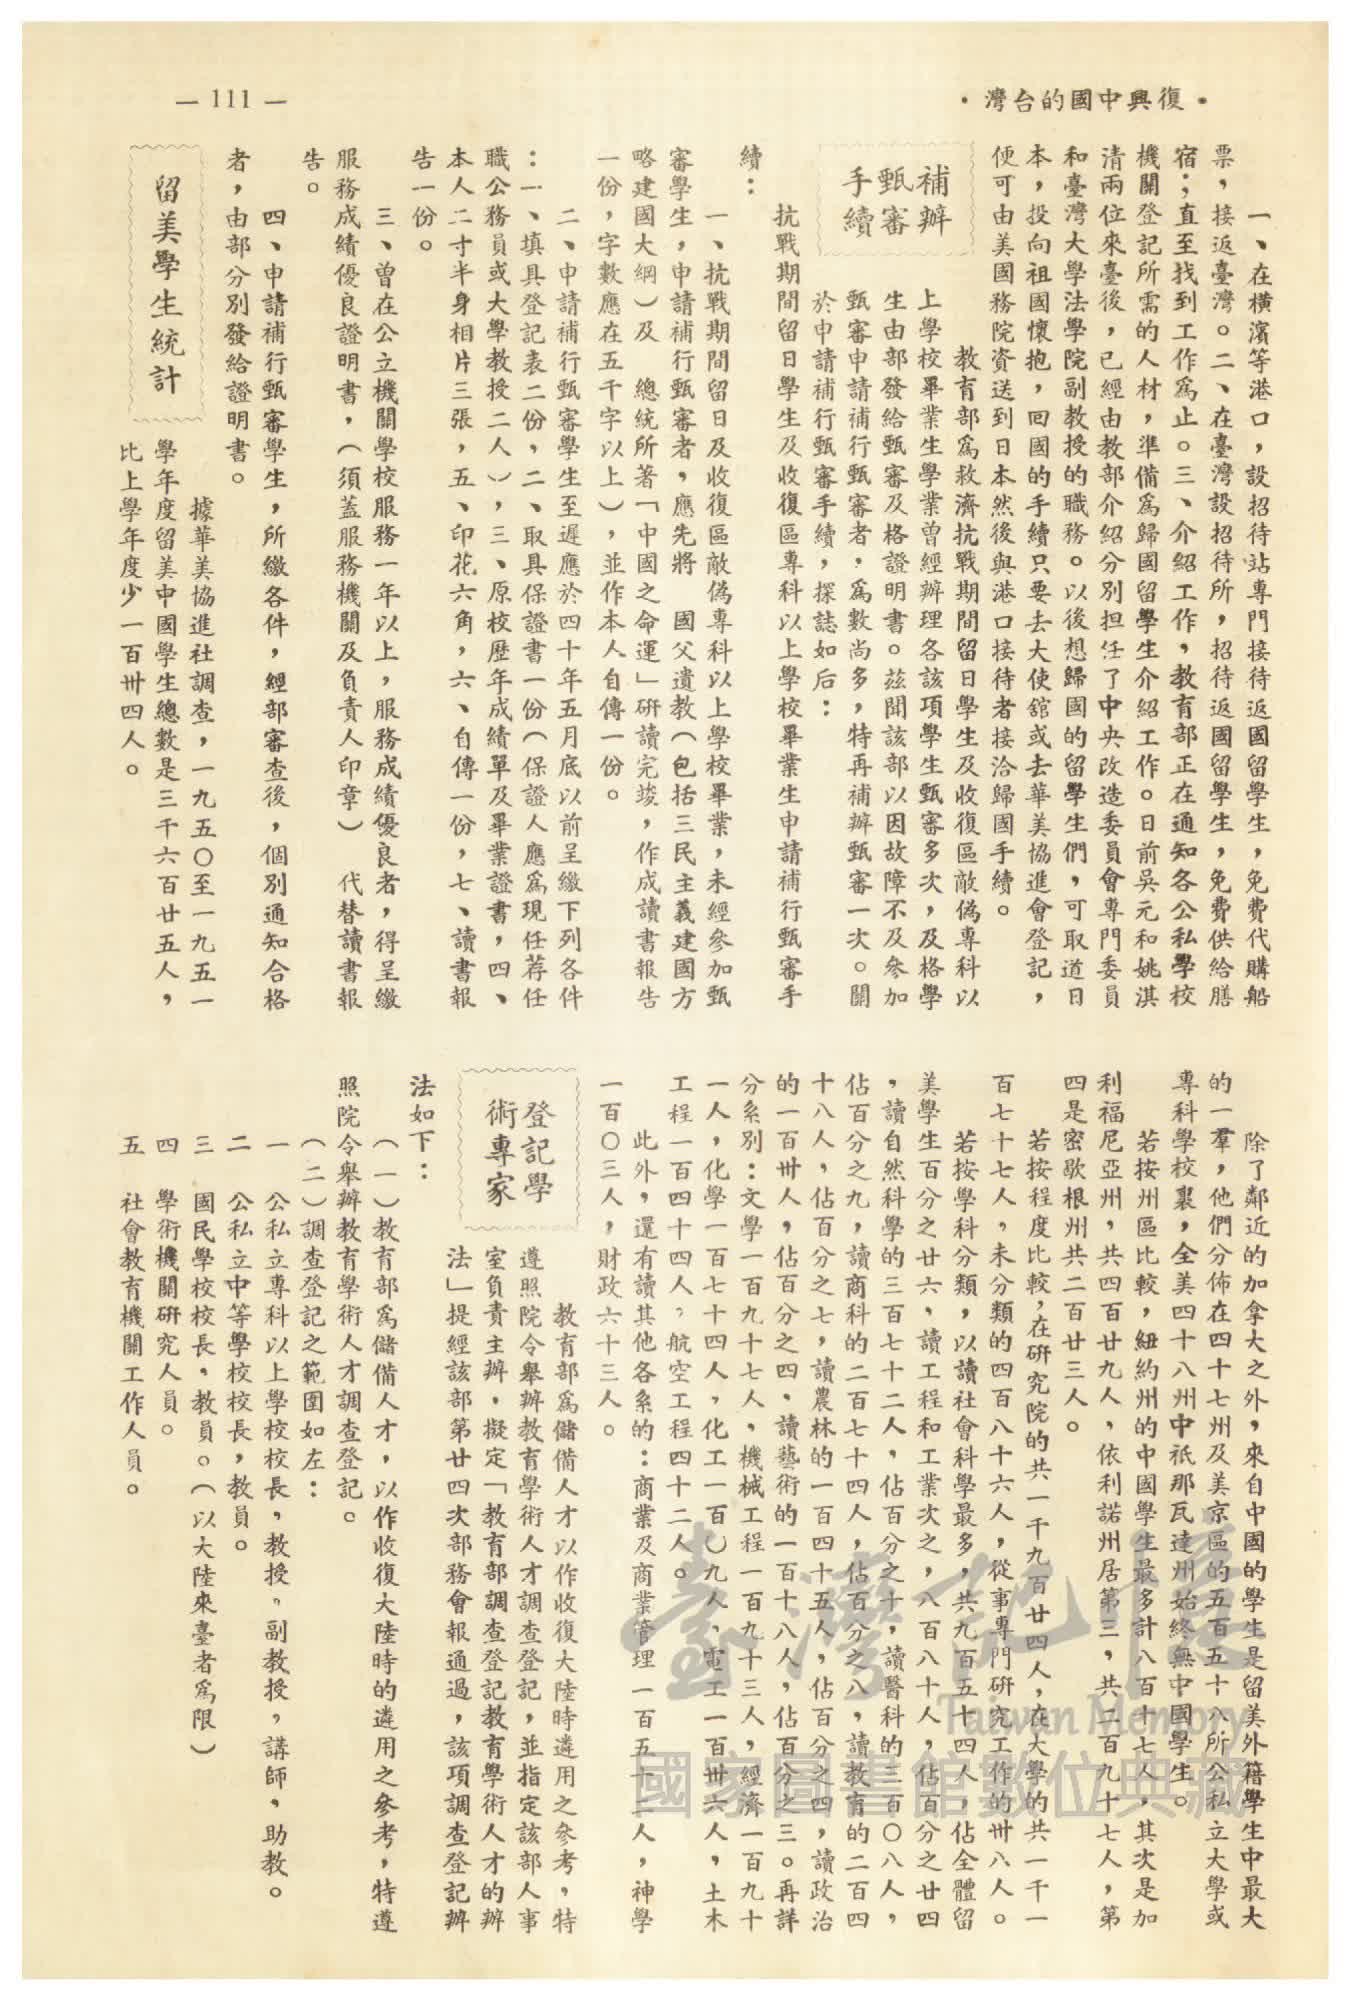 •復興中國的台灣•
— 111 —
一、在橫濱等港口，設招待站專門接待返國留學生，免費代購船
票，接返臺灣。二、在臺灣設招待所，招待返國留學生，免費供給膳
宿；直至找到工作爲止。三、介紹工作，教育部正在通知各公私學校
機關登記所需的人材，準備爲歸國留學生介紹工作。日前吳元和姚淇
清兩位來臺後，已經由教部介紹分別担任了中央改造委員會專門委員
和臺灣大學法學院副教授的職務。以後想歸國的留學生們，可取道日
本，投向祖國懷抱，回國的手續只要去大使舘或去華美協進會登記，
便可由美國務院資送到日本然後與港口接待者接洽歸國手續。
補辦
甄審
手續
教育部爲救濟抗戰期間留日學生及收復區敵偽專科以
上學校畢業生學業曾經辦理各該項學生甄審多次，及格學
生由部發給甄審及格證明書。茲聞該部以因故障不及參加
甄審申請補行甄審者，爲數尚多，特再補辦甄審一次。關
於申請補行甄審手續，探誌如后：
抗戰期間留日學生及收復區專科以上學校畢業生申請補行甄審手
續：
一、抗戰期間留日及收復區敵偽專科以上學校畢業，未經參加甄
審學生，申請補行甄審者，應先將 國父遺教（包括三民主義建國方
略建國大綱）及 總統所著「中國之命運」研讀完竣，作成讀書報告
一份，字數應在五千字以上），並作本人自傳一份。
二、申請補行甄審學生至遲應於四十年五月底以前呈繳下列各件
：一、填具登記表二份，二、取具保證書一份（保證人應爲現任荐任
職公務員或大學教授二人），三、原校歷年成績單及畢業證書，四、
本人二寸半身相片三張，五、印花六角，六、自傳一份，七、讀書報
告一份。
三、曾在公立機關學校服務一年以上，服務成績優良者，得呈繳
服務成績優良證明書，（須蓋服務機關及負責人印章） 代替讀書報
告。
四、申請補行甄審學生，所繳各件，經部審查後，個別通知合格
者，由部分別發給證明書。
留美學生統計
據華美協進社調查，一九五〇至一九五一
學年度留美中國學生總數是三千六百廿五人，
比上學年度少一百卅四人。
除了鄰近的加拿大之外，來自中國的學生是留美外籍學生中最大
的一羣，他們分佈在四十七州及美京區的五百五十八所公私立大學或
專科學校裏，全美四十八州中祇那瓦達州始終無中國學生。
若按州區比較，紐約州的中國學生最多計八百十七人，其次是加
利福尼亞州，共四百廿九人，依利諾州居第三，共二百九十七人，第
四是密歇根州共二百廿三人。
若按程度比較，在研究院的共一千九百廿四人，在大學的共一千一
百七十七人，未分類的四百八十六人，從事專門研究工作的卅八人。
若按學科分類，以讀社會科學最多，共九百五十四人，佔全體留
美學生百分之廿六，讀工程和工業次之，八百八十人，佔百分之廿四
，讀自然科學的三百七十二人，佔百分之十，讀醫科的三百〇八人，
佔百分之九，讀商科的二百七十四人，佔百分之八，讀教育的二百四
十八人，佔百分之七，讀農林的一百四十五人，佔百分之四，讀政治
的一百卅人，佔百分之四，讀藝術的一百十八人，佔百分之三。再詳
分系別：文學一百九十七人，機械工程一百九十三人，經濟一百九十
一人，化學一百七十四人，化工一百〇九人，電工一百卅六人，土木
工程一百四十四人，航空工程四十二人。
此外，還有讀其他各系的：商業及商業管理一百五十二人，神學
一百〇三人，財政六十三人。
登記學
術專家
教育部爲儲備人才以作收復大陸時遴用之參考，特
遵照院令舉辦教育學術人才調查登記，並指定該部人事
室負責主辦，擬定「教育部調查登記教育學術人才的辦
法」提經該部第廿四次部務會報通過，該項調查登記辦
法如下：
（一）教育部爲儲備人才，以作收復大陸時的遴用之參考，特遵
照院令舉辦教育學術人才調查登記。
（二）調查登記之範圍如左：
一 公私立專科以上學校校長，教授，副教授，講師，助教。
二 公私立中等學校校長，教員。
三 國民學校校長，教員。（以大陸來臺者爲限）
四 學術機關研究人員。
五 社會教育機關工作人員。
臺灣記憶
Taiwan Memory
國家圖書館數位典藏